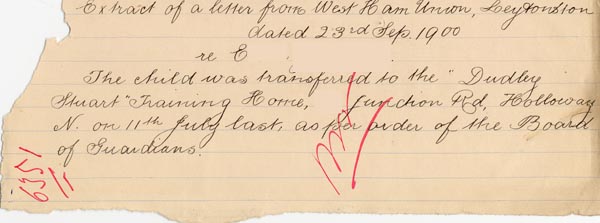 Extract of a letter from West Ham Union, Leytonston
dated 23rd Sep. 1900
re E
The child was transferred to the "Dudley
Stuart" Training Home, Junction Rd, Holloway
N. on 11th July last, as per order of the Board
of Guardians.
6351